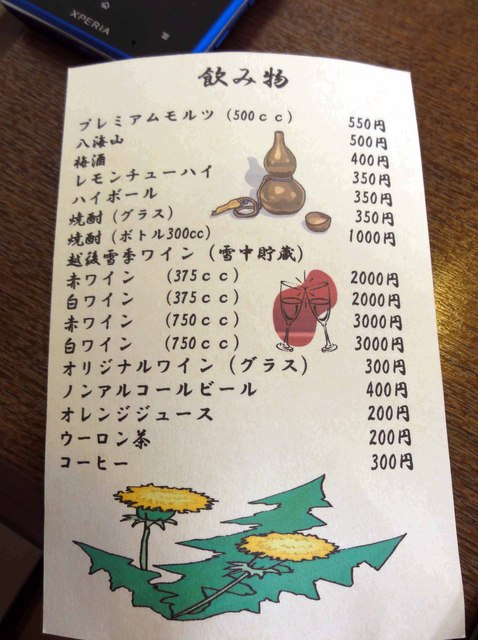 XPERIA
飲み物
プレミアムモルツ（500ｃｃ） 550円
八海山 500円
梅酒 400円
レモンチューハイ 350円
ハイボール 350円
焼酎（グラス） 350円
焼酎（ボトル300cc） 1000円
越後雪季ワイン（雪中貯蔵）
赤ワイン （375ｃｃ） 2000円
白ワイン （375ｃｃ） 2000円
赤ワイン （750ｃｃ） 3000円
白ワイン （750ｃｃ） 3000円
オリジナルワイン（グラス） 300円
ノンアルコールビール 400円
オレンジジュース 200円
ウーロン茶 200円
コーヒー 300円